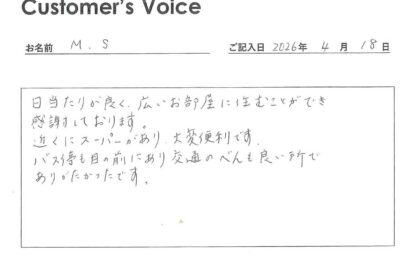 Customer's Voice
お名前 M.S ご記入日 2026年 4月 18日
日当たりが良く、広いお部屋に住むことができ
感謝しております。
近くにスーパーがあり、大変便利です。
バス停も目の前にあり交通のべんも良い所で
ありがたかったです。